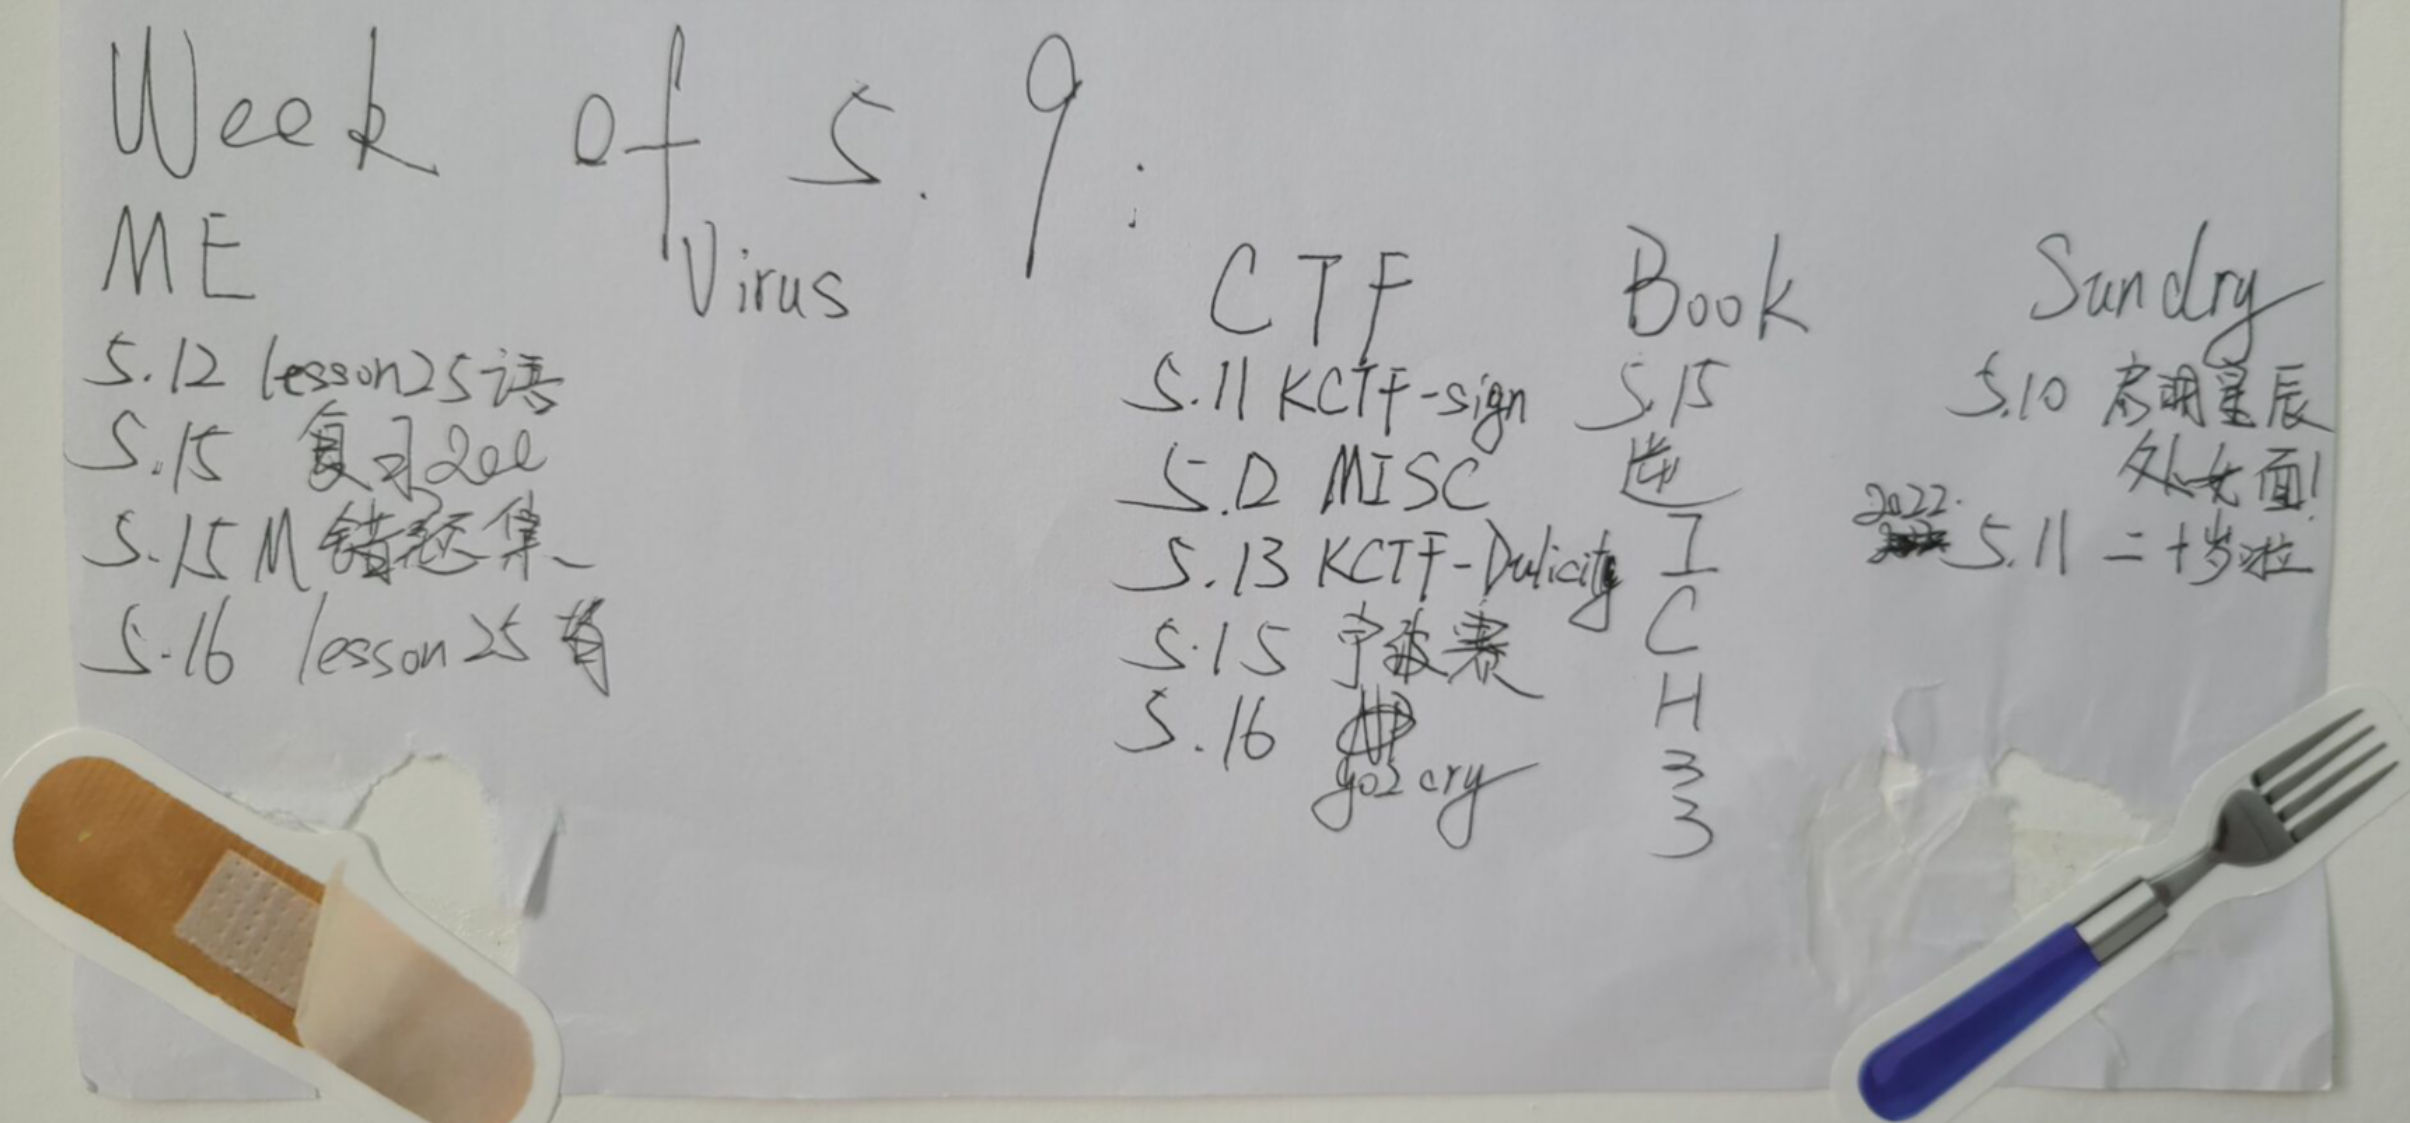 Week of 5.9:
ME
5.12 lesson25 语
5.15 复习200
5.15 M 错题集
5.16 lesson25 背
Virus
CTF
5.11 KCTF-sign
5.12 MISC
5.13 KCTF-Dulicity
5.15 宁波赛
5.16
go2cry
Book
5.15
逆
I
C
H
3
3
Sundry
5.10 启明星辰
处女面!
2022.
5.11 二十岁啦